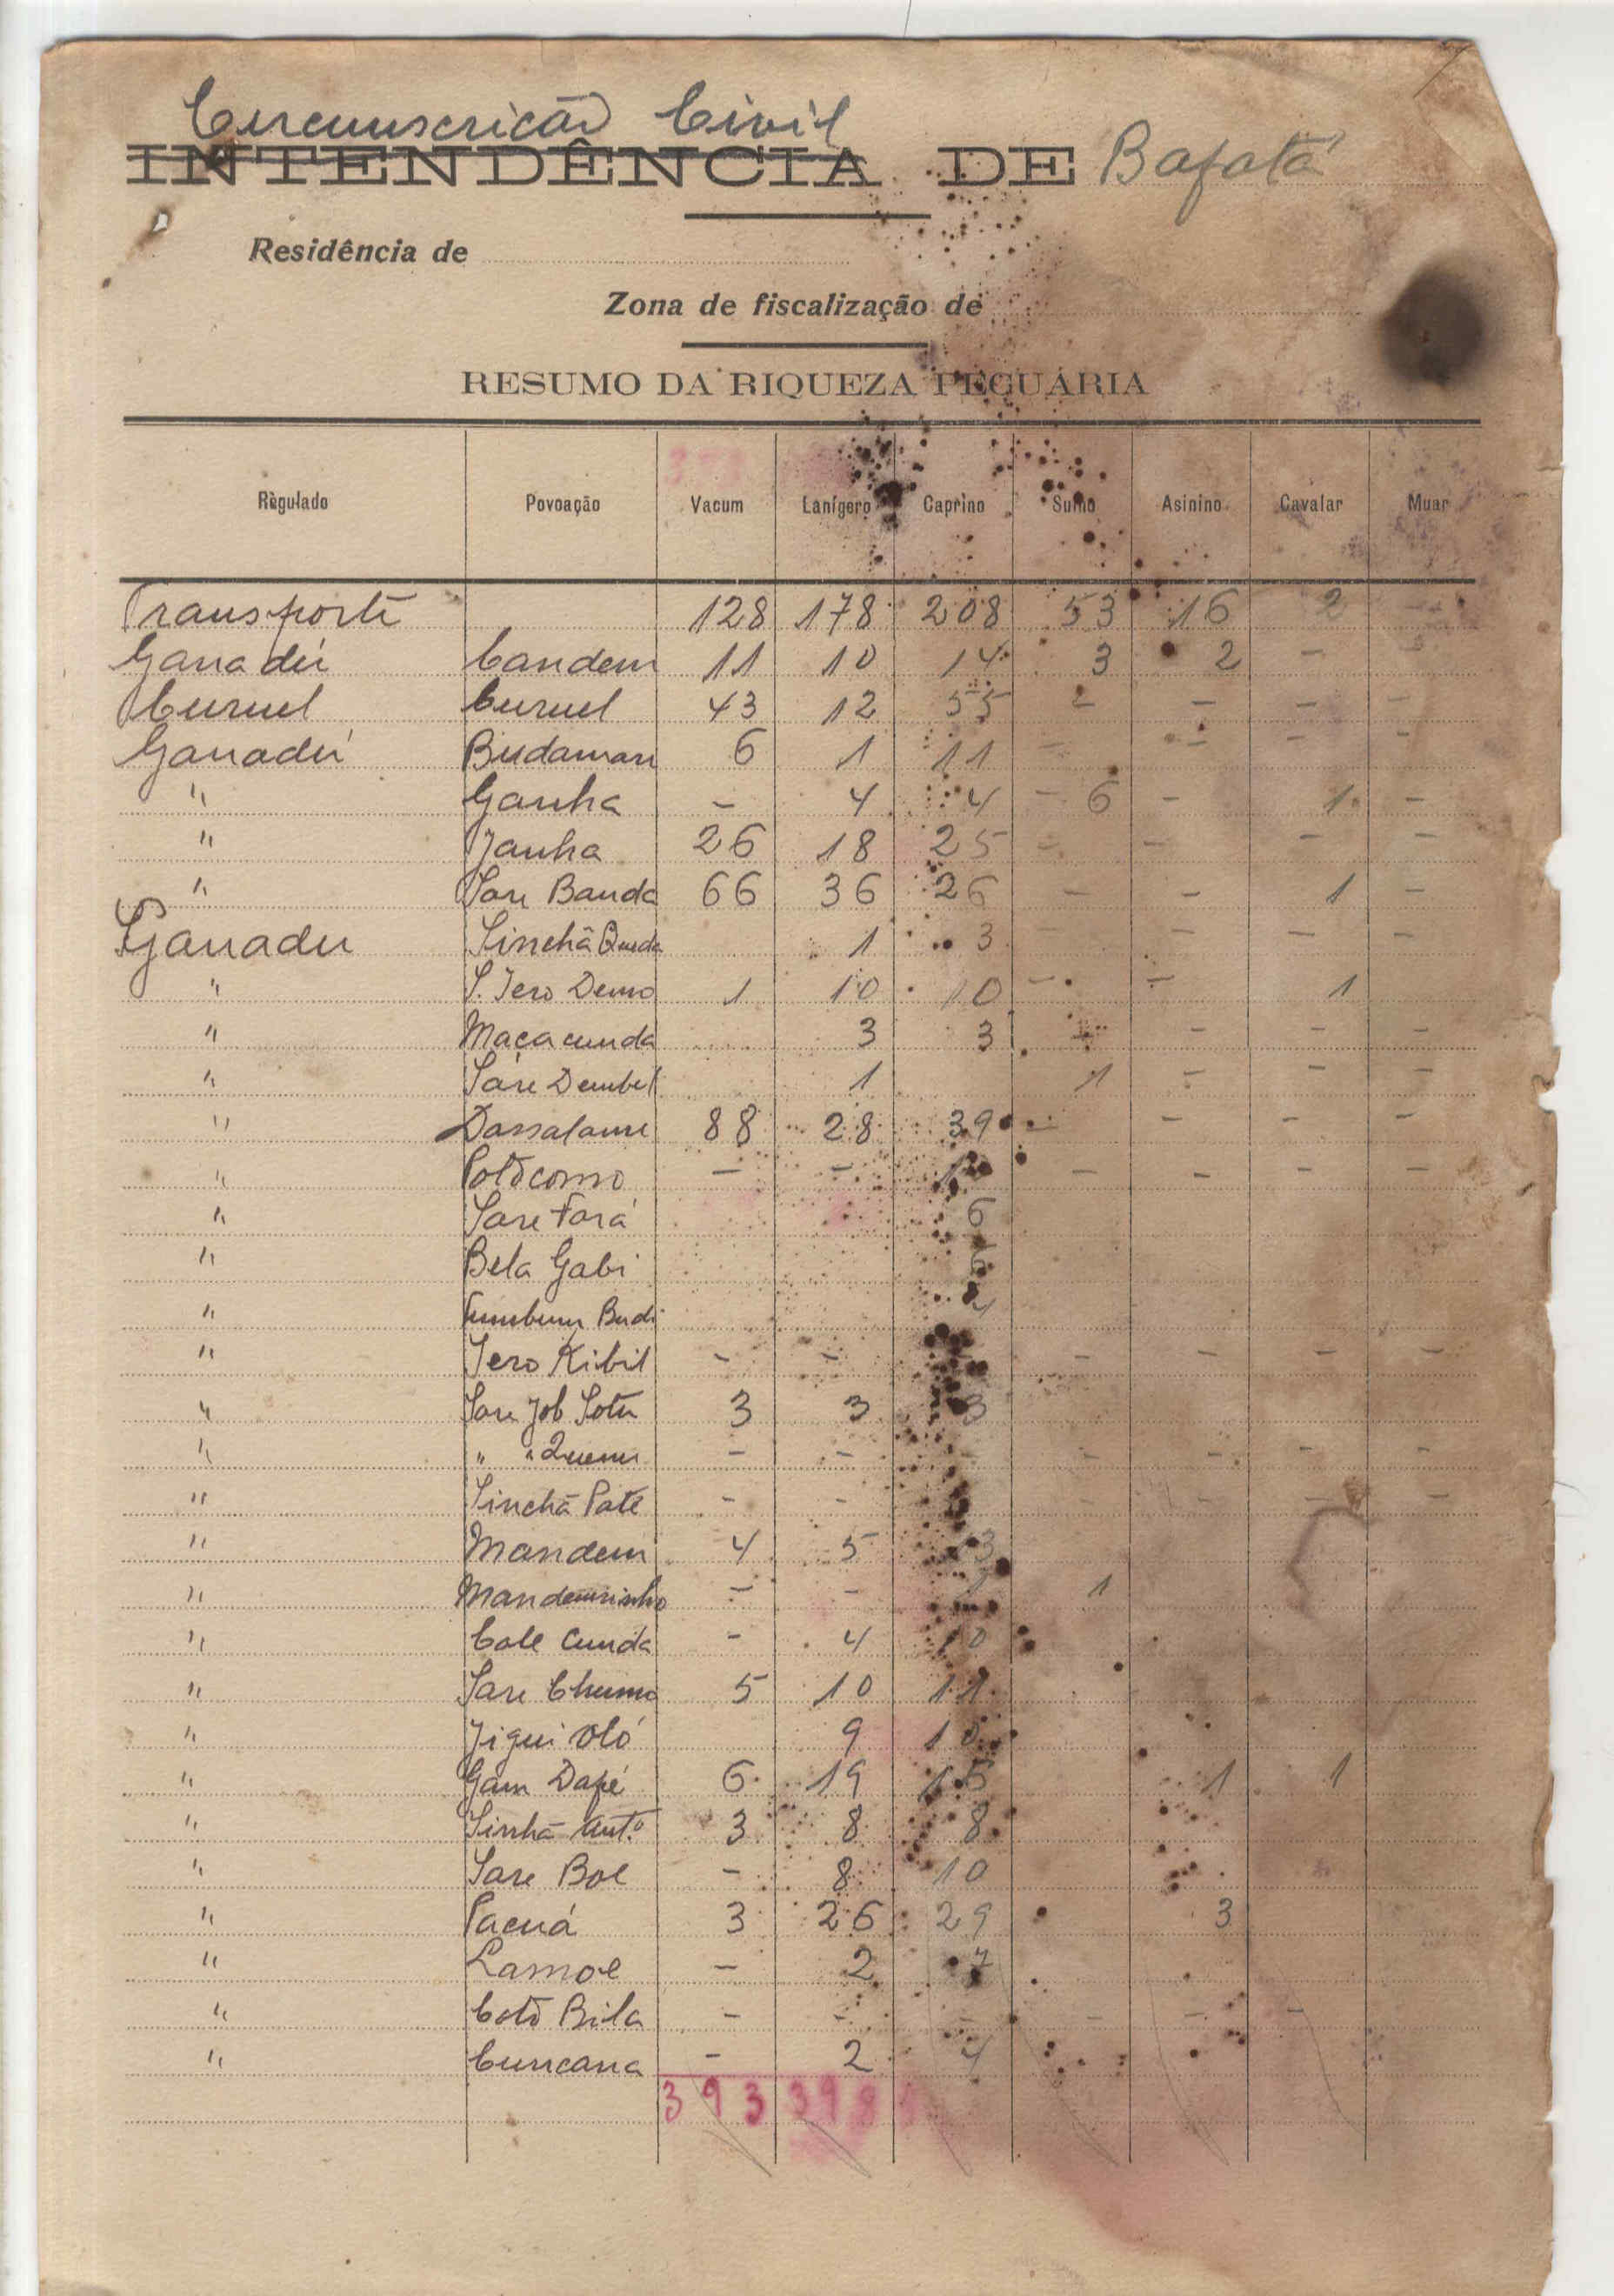 Circunscrição Civil
INTENDÊNCIA DE Bafatá
Residência de
Zona de fiscalização de
RESUMO DA RIQUEZA PECUÁRIA
Règulado Povoação Vacum Lanígero Caprino Suíno Asinino Cavalar Muar
Transporte 128 178 208 53 16 2 -
Ganadú Candem 11 10 14 3 2 -
Curuel Curuel 43 12 55 2 - - -
Ganadú Budaman 6 1 11 - - - -
" Ganha - 4 4 - 6 - 1 -
" Janha 26 18 25 - - - -
" Sare Banda 66 36 26 - - 1 -
Ganadu Sinchã Queda 1 3 - - - -
" S. Iero Demo 1 10 10 - - 1
" Maçacunda 3 3 - - - -
" Sáre Dembel 1 1 - - -
" Dassalame 88 28 39 - - - -
" Potocomo - - - - - -
" Sare Fará 6
" Bela Gabi
" Budi
" Iero Kibil - - - - - -
" Sare Job Sotu 3 3 3
" " " - - - - - -
" Sinchã Paté - - - - - -
" Mandem 4 5
" Mandeminho - - 1
" Cole Cunda - 4 10
" Sare Chumo 5 10 11
" Jigui Oló 9 10
" Gam Dapé 6 19 15 1 1
" Sinhã Antº 3 8 8
" Sare Boe - 8 10
" Pacuá 3 26 29 3
" Lamoe - 2 7
" Coto Bila - - - - - -
" Cuncana - 2 4
393 398